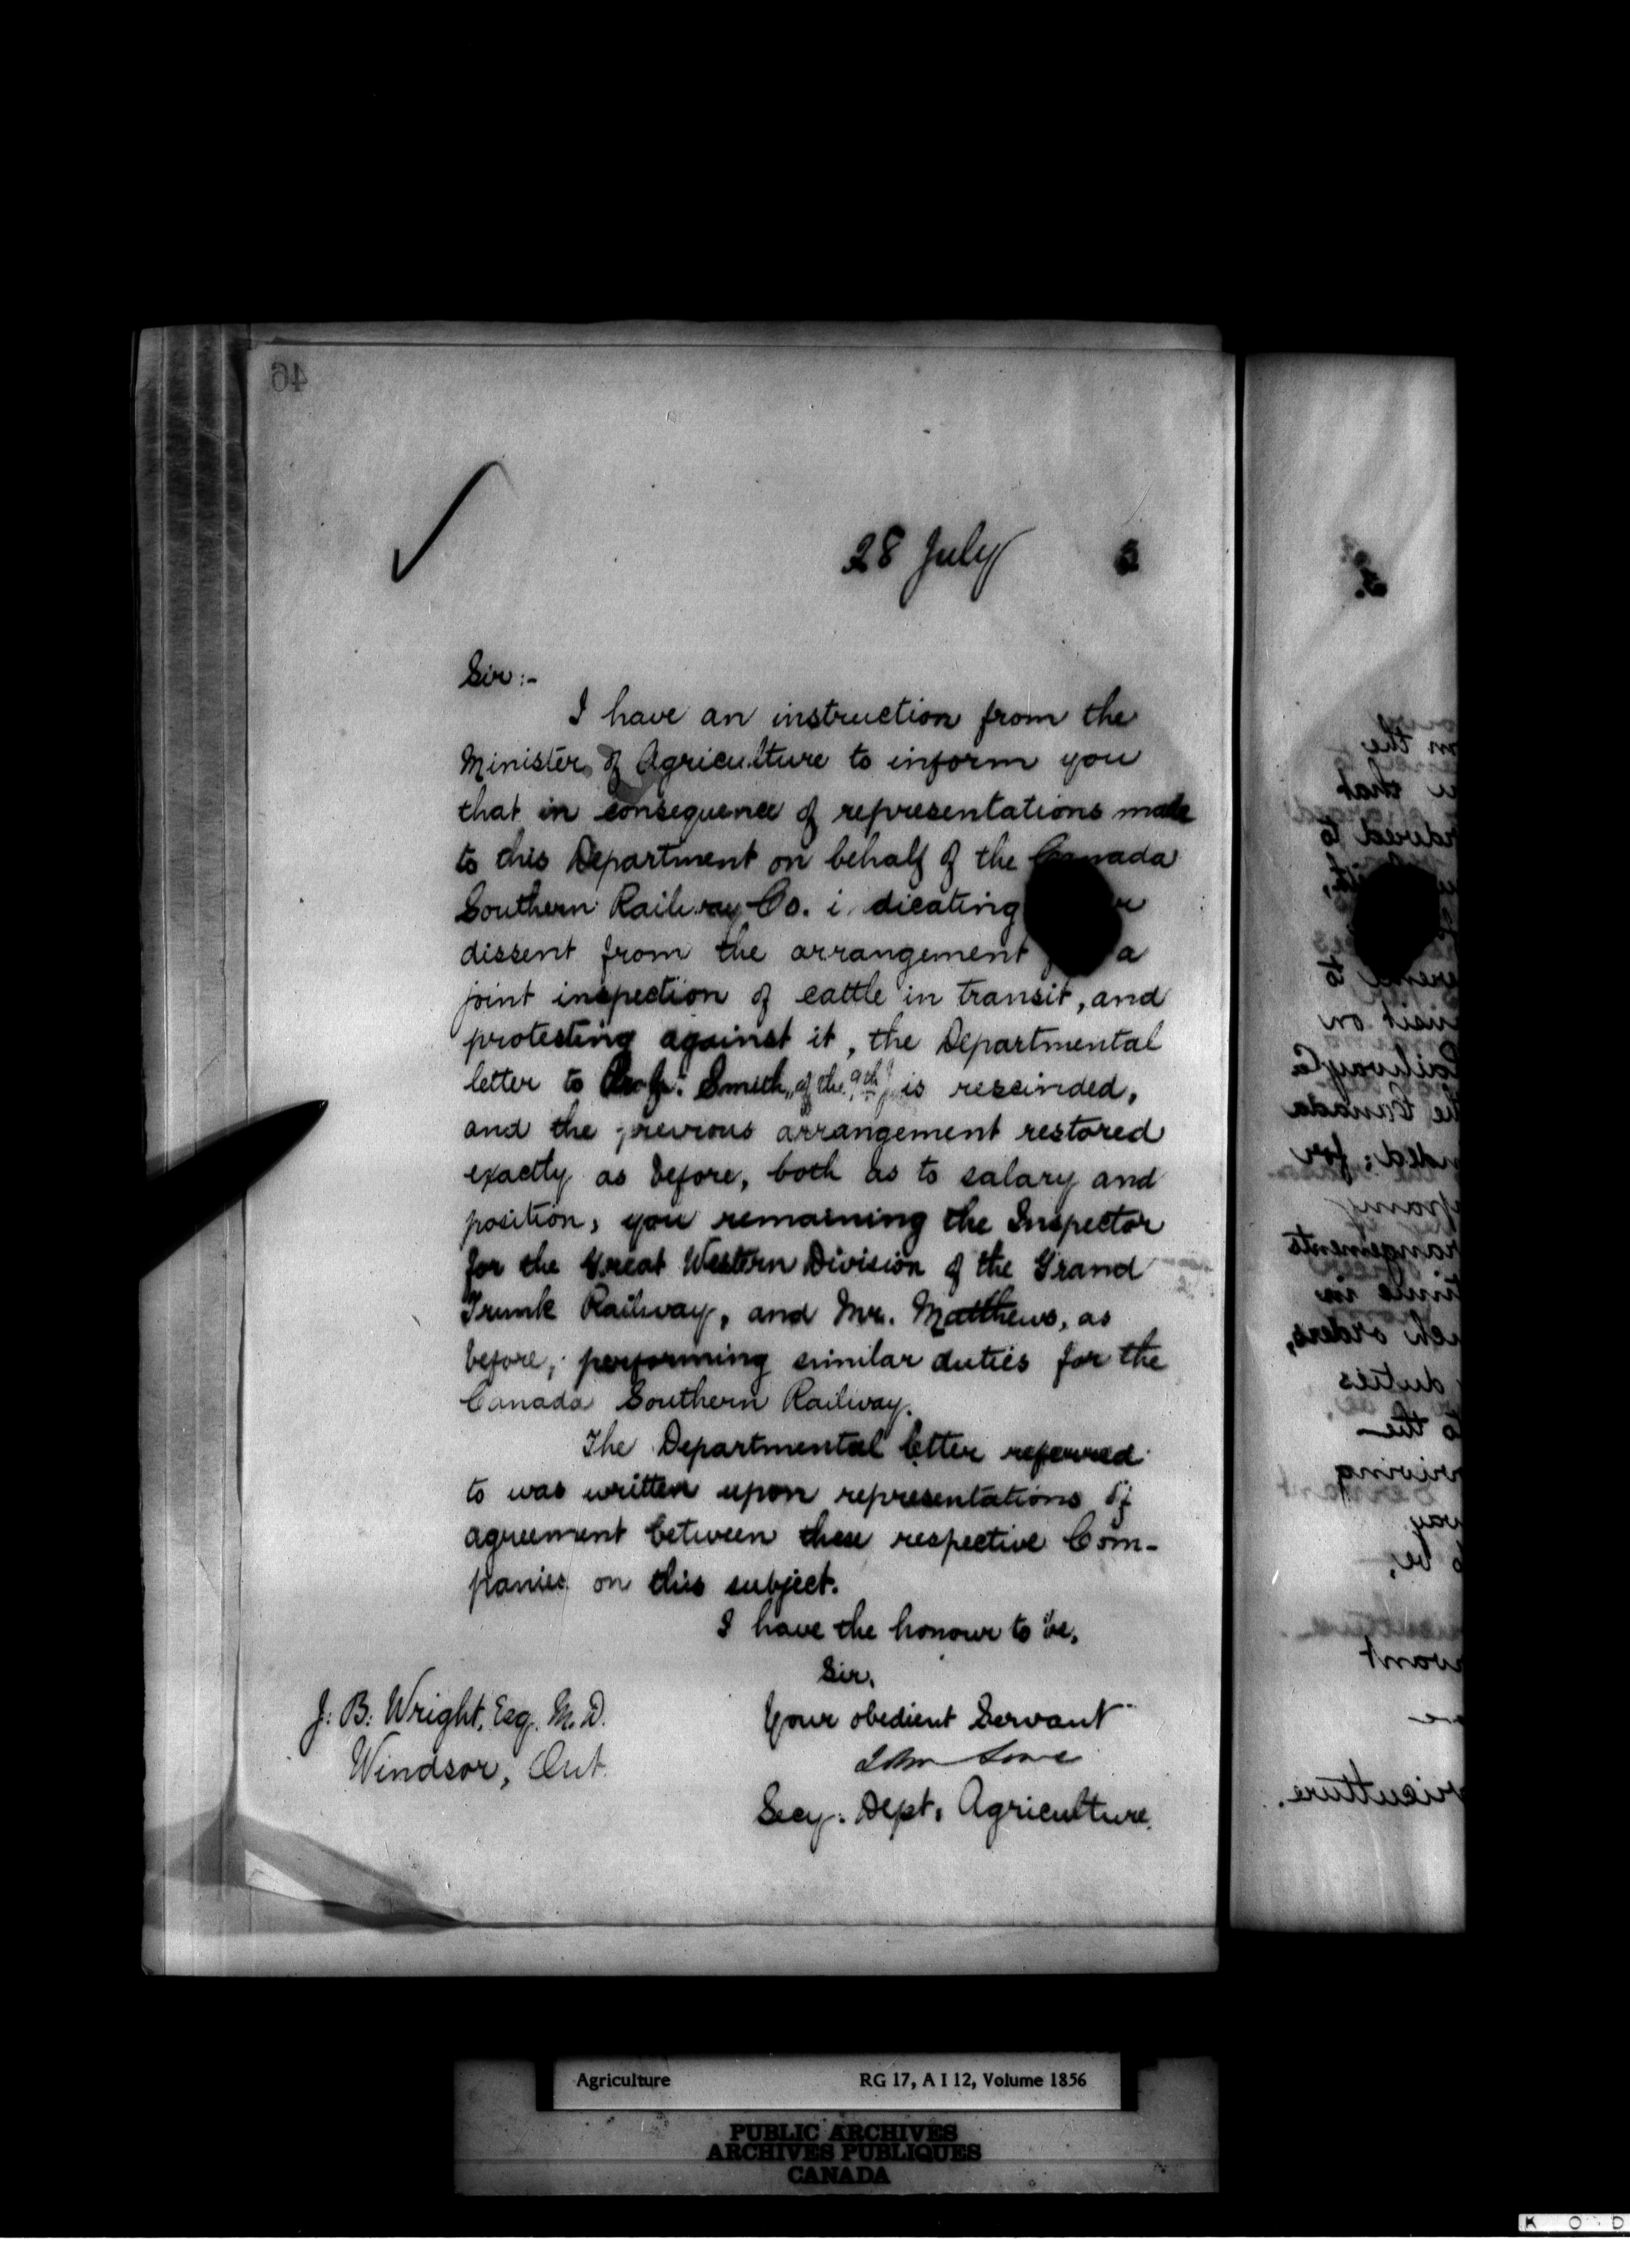 46
28 July 3
Sir:-
I have an instruction from the
Minister of Agriculture to inform you
that in consequence of representations made
to this Department on behalf of the Canada
Southern Railway Co. indicating
dissent from the arrangement a
joint inspection of cattle in transit, and
protesting against it, the Departmental
letter to Prof. Smith, of the 9th is rescinded,
and the previous arrangement restored
exactly as before, both as to salary and
position, you remaining the Inspector
for the Great Western Division of the Grand
Trunk Railway, and Mr. Matthews, as
before, performing similar duties for the
Canada Southern Railway.
The Departmental letter referred
to was written upon representations of
agreement between these respective Com-
panies on this subject.
I have the honour to be,
Sir,
Your obedient Servant
John Lowe
Secy. Dept. Agriculture.
J. B. Wright, Esq. M. D.
Windsor, Ont.
Agriculture RG 17, A I 12, Volume 1856
PUBLIC ARCHIVES
ARCHIVES PUBLIQUES
CANADA
K O D